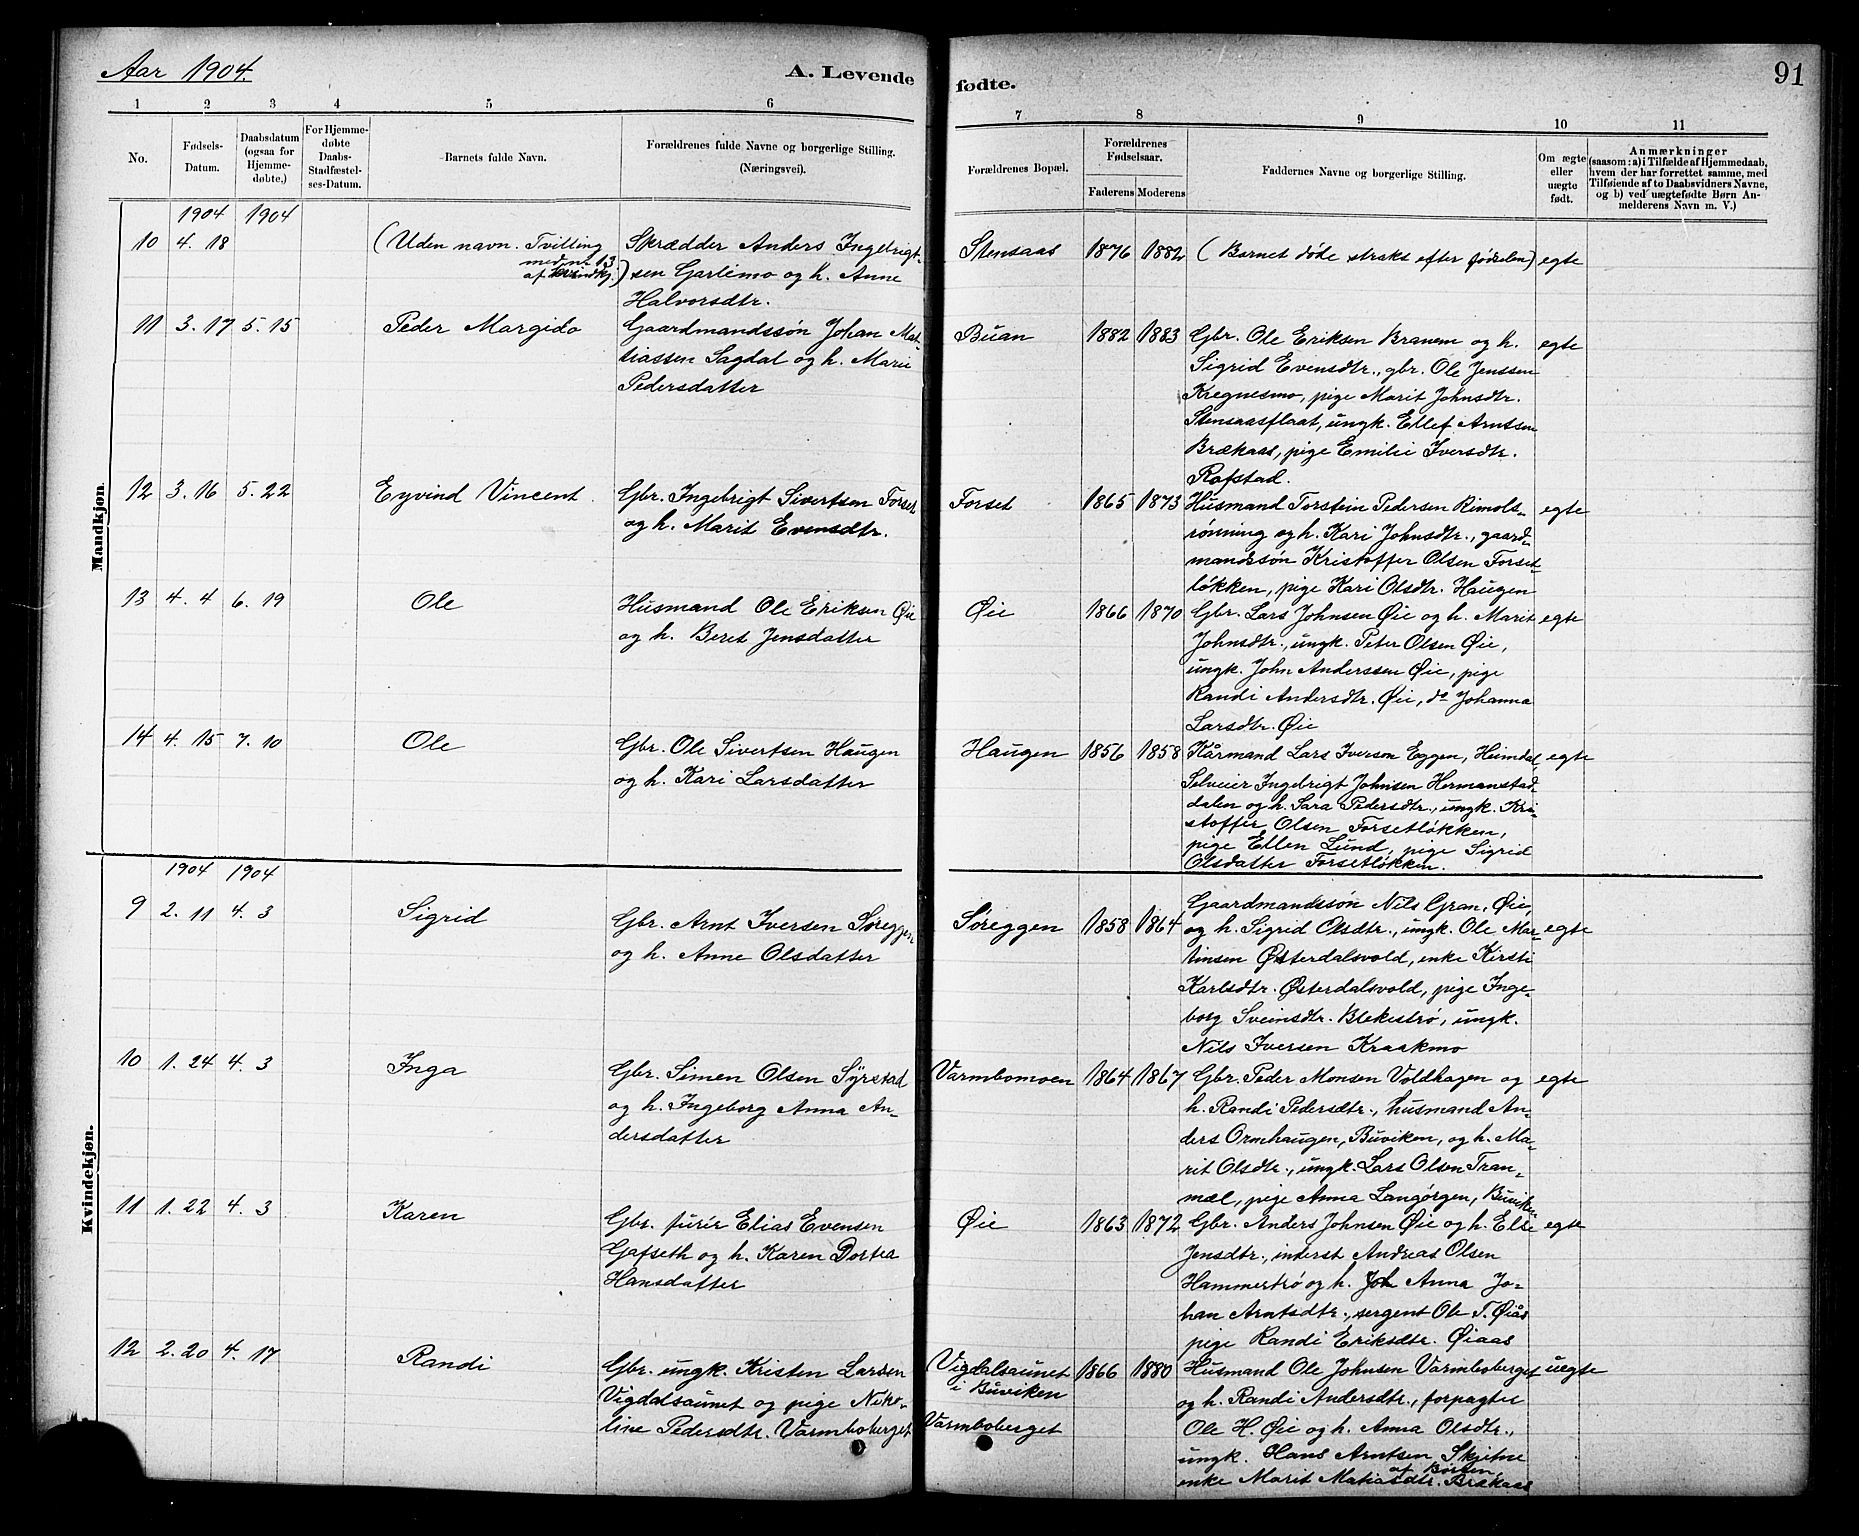 Aar 1904.
A. Levende
fødte.
91
1 2 3 4 5 6
7 8 9 10 11
No.
Fødsels-
Datum.
Daabsdatum
(ogsaa for
Hjemme-
døbte.)
For Hjemme-
døbte
Daabs-
Stadfæstel-
ses-Datum.
Barnets fulde Navn.
Forældrenes fulde Navne og borgerlige Stilling.
(Næringsvei).
Forældrenes Bopæl.
Forældrenes
Fødselsaar.
Faderens Moderens
Faddernes Navne og borgerlige Stilling.
Om ægte
eller
uægte
født.
Anmærkninger
(saasom: a) i Tilfælde af Hjemmedaab,
hvem der har forrettet samme, med
Tilføiende af to Daabsvidners Navne,
og b) ved uægtefødte Børn An-
melderens Navn m. V.)
Mandkjøn.
1904 1904
10 4. 18
(Uden navn. Tvilling
med nr. 13
af kvindkj.)
Skrædder Anders Ingebrigt-
sen Garlimo og h. Anne
Halvorsdtr.
Stensaas 1876 1882 (Barnet døde straks efter fødselen) egte
11 3. 17 5. 15 Peder Margido
Gaardmandssøn Johan Mat-
tiassen Sagdal og h. Marie
Pedersdatter
Buan 1882 1883
Gbr. Ole Eriksen Branem og h.
Sigrid Evensdtr., gbr. Ole Jenssen
Kregnesmo, pige Marit Johnsdtr.
Stensaasflaat, ungk. Ellef Arntsen
Brækaas, pige Emilie Iversdtr.
Rofstad.
egte
12 3. 16 5. 22 Eyvind Vincent.
Gbr. Ingebrigt Sivertsen Forset
og h. Marit Evensdtr.
Forset 1865 1873
Husmand Torstein Pedersen Rimols-
rønning og h. Kari Johnsdtr., gaard-
mandssøn Kristoffer Olsen Forset-
løkken, pige Kari Olsdtr. Haugen
egte
13 4. 4 6. 19 Ole
Husmand Ole Eriksen Øie
og h. Beret Jensdatter
Øie 1866 1870
Gbr. Lars Johnsen Øie og h. Marit
Johnsdtr., ungk. Peter Olsen Øie,
ungk. John Anderssen Øie, pige
Randi Andersdtr. Øie, do Johanna
Larsdtr. Øie
egte
14 4. 15 7. 10 Ole
Gbr. Ole Sivertsen Haugen
og h. Kari Larsdatter
Haugen 1856 1858
Kårmand Lars Iverson Eggen, Heimdal,
Selveier Ingebrigt Johnsen Hermanstad
dalen og h. Sara Pedersdtr., ungk. Kri-
stoffer Olsen Forsetløkken,
pige Ellen Lund, pige Sigrid
Olsdatter Forsetløkken.
egte
Kvindekjøn.
1904 1904
9 2. 11 4. 3 Sigrid
Gbr. Arnt Iversen Søreggen
og h. Anne Olsdatter
Søreggen 1858 1864
Gaardmandssøn Nils Gran, Øie,
og h. Sigrid Olsdtr., ungk. Ole Mar-
tinsen Østerdalsvold, enke Kirsti
Karlsdtr. Østerdalsvold, pige Inge-
borg Sveinsdtr. Blekestrø, ungk.
Nils Iversen Kraakmo
egte
10 1. 24 4. 3 Inga
Gbr. Simen Olsen Syrstad
og h. Ingeborg Anna An-
dersdatter
Varmbomoen 1864 1867
Gbr. Peder Monsen Voldhagen og
h. Randi Pedersdtr., husmand An-
ders Ormhaugen, Buviken, og h. Ma-
rit Olsdtr., ungk. Lars Olsen Tran-
mæl, pige Anna Langørgen, Buviken
egte
11 1. 22 4. 3 Karen
Gbr. furér Elias Evensen
Gafseth og h. Karen Dortea
Hansdatter
Øie 1863 1872
Gbr. Anders Johnsen Øie og h. Else
Jensdtr., inderst Andreas Olsen
Hammertrø og h. Joh Anna Jo-
han Arntsdtr., sergent Ole T. Øiås
pige Randi Eriksdtr. Øiaas
egte
12 2. 20 4. 17 Randi
Gbr. ungk. Kristen Larsen
Vigdalsaunet og pige Niko-
line Pedersdtr. Varmboberget
Vigdalsaunet
i Buviken
Varmboberget
1866 1880
Husmand Ole Johnsen Varmboberget
og h. Randi Andersdtr., forpagter
Ole H. Øie og h. Anna Olsdtr.,
ungk. Hans Arntsen Skjetne
af Børsen,
enke Marit Matiasdtr. Brækaas
uegte